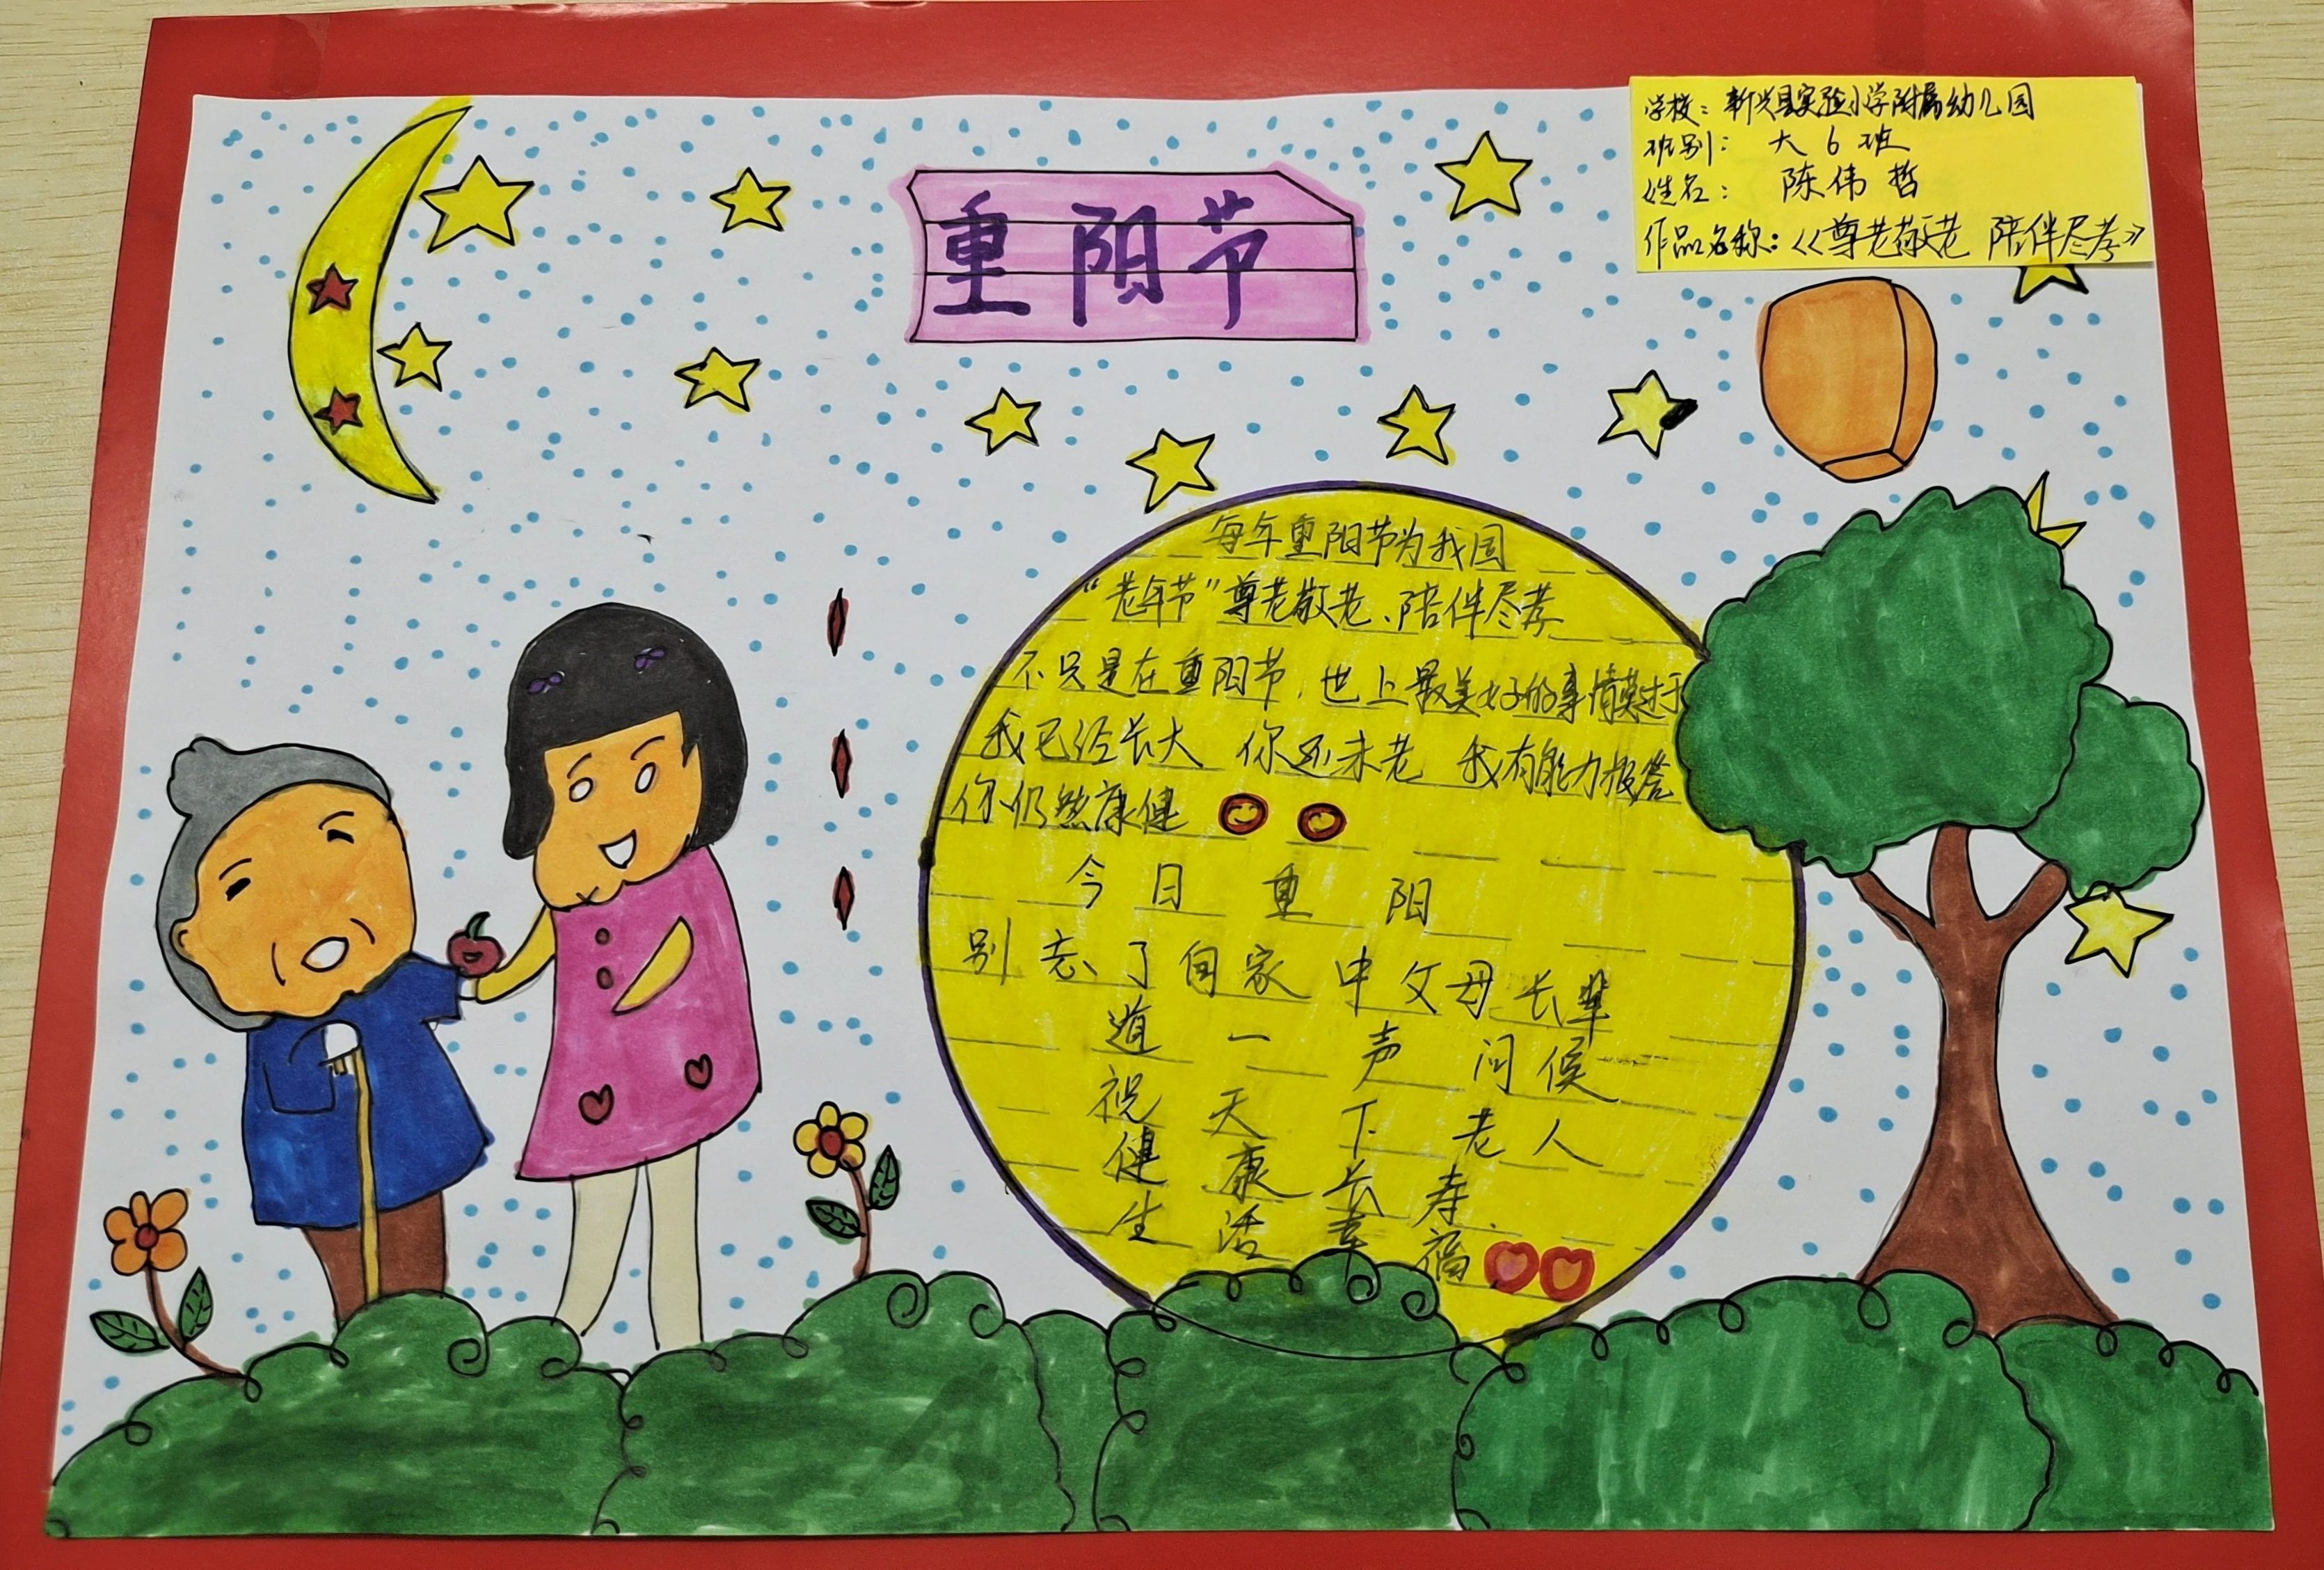 重阳节
学校：新兴县实验小学附属幼儿园
班别：大6班
姓名：陈伟哲
作品名称：《尊老敬老 陪伴尽孝》
每年重阳节为我国
“老年节”尊老敬老、陪伴尽孝
不只是在重阳节，世上最美好的事情莫过于
我已经长大 你还未老 我有能力报答
你仍然康健
今日重阳
别忘了向家中父母长辈
道一声问候
祝天下老人
健康长寿
生活幸福